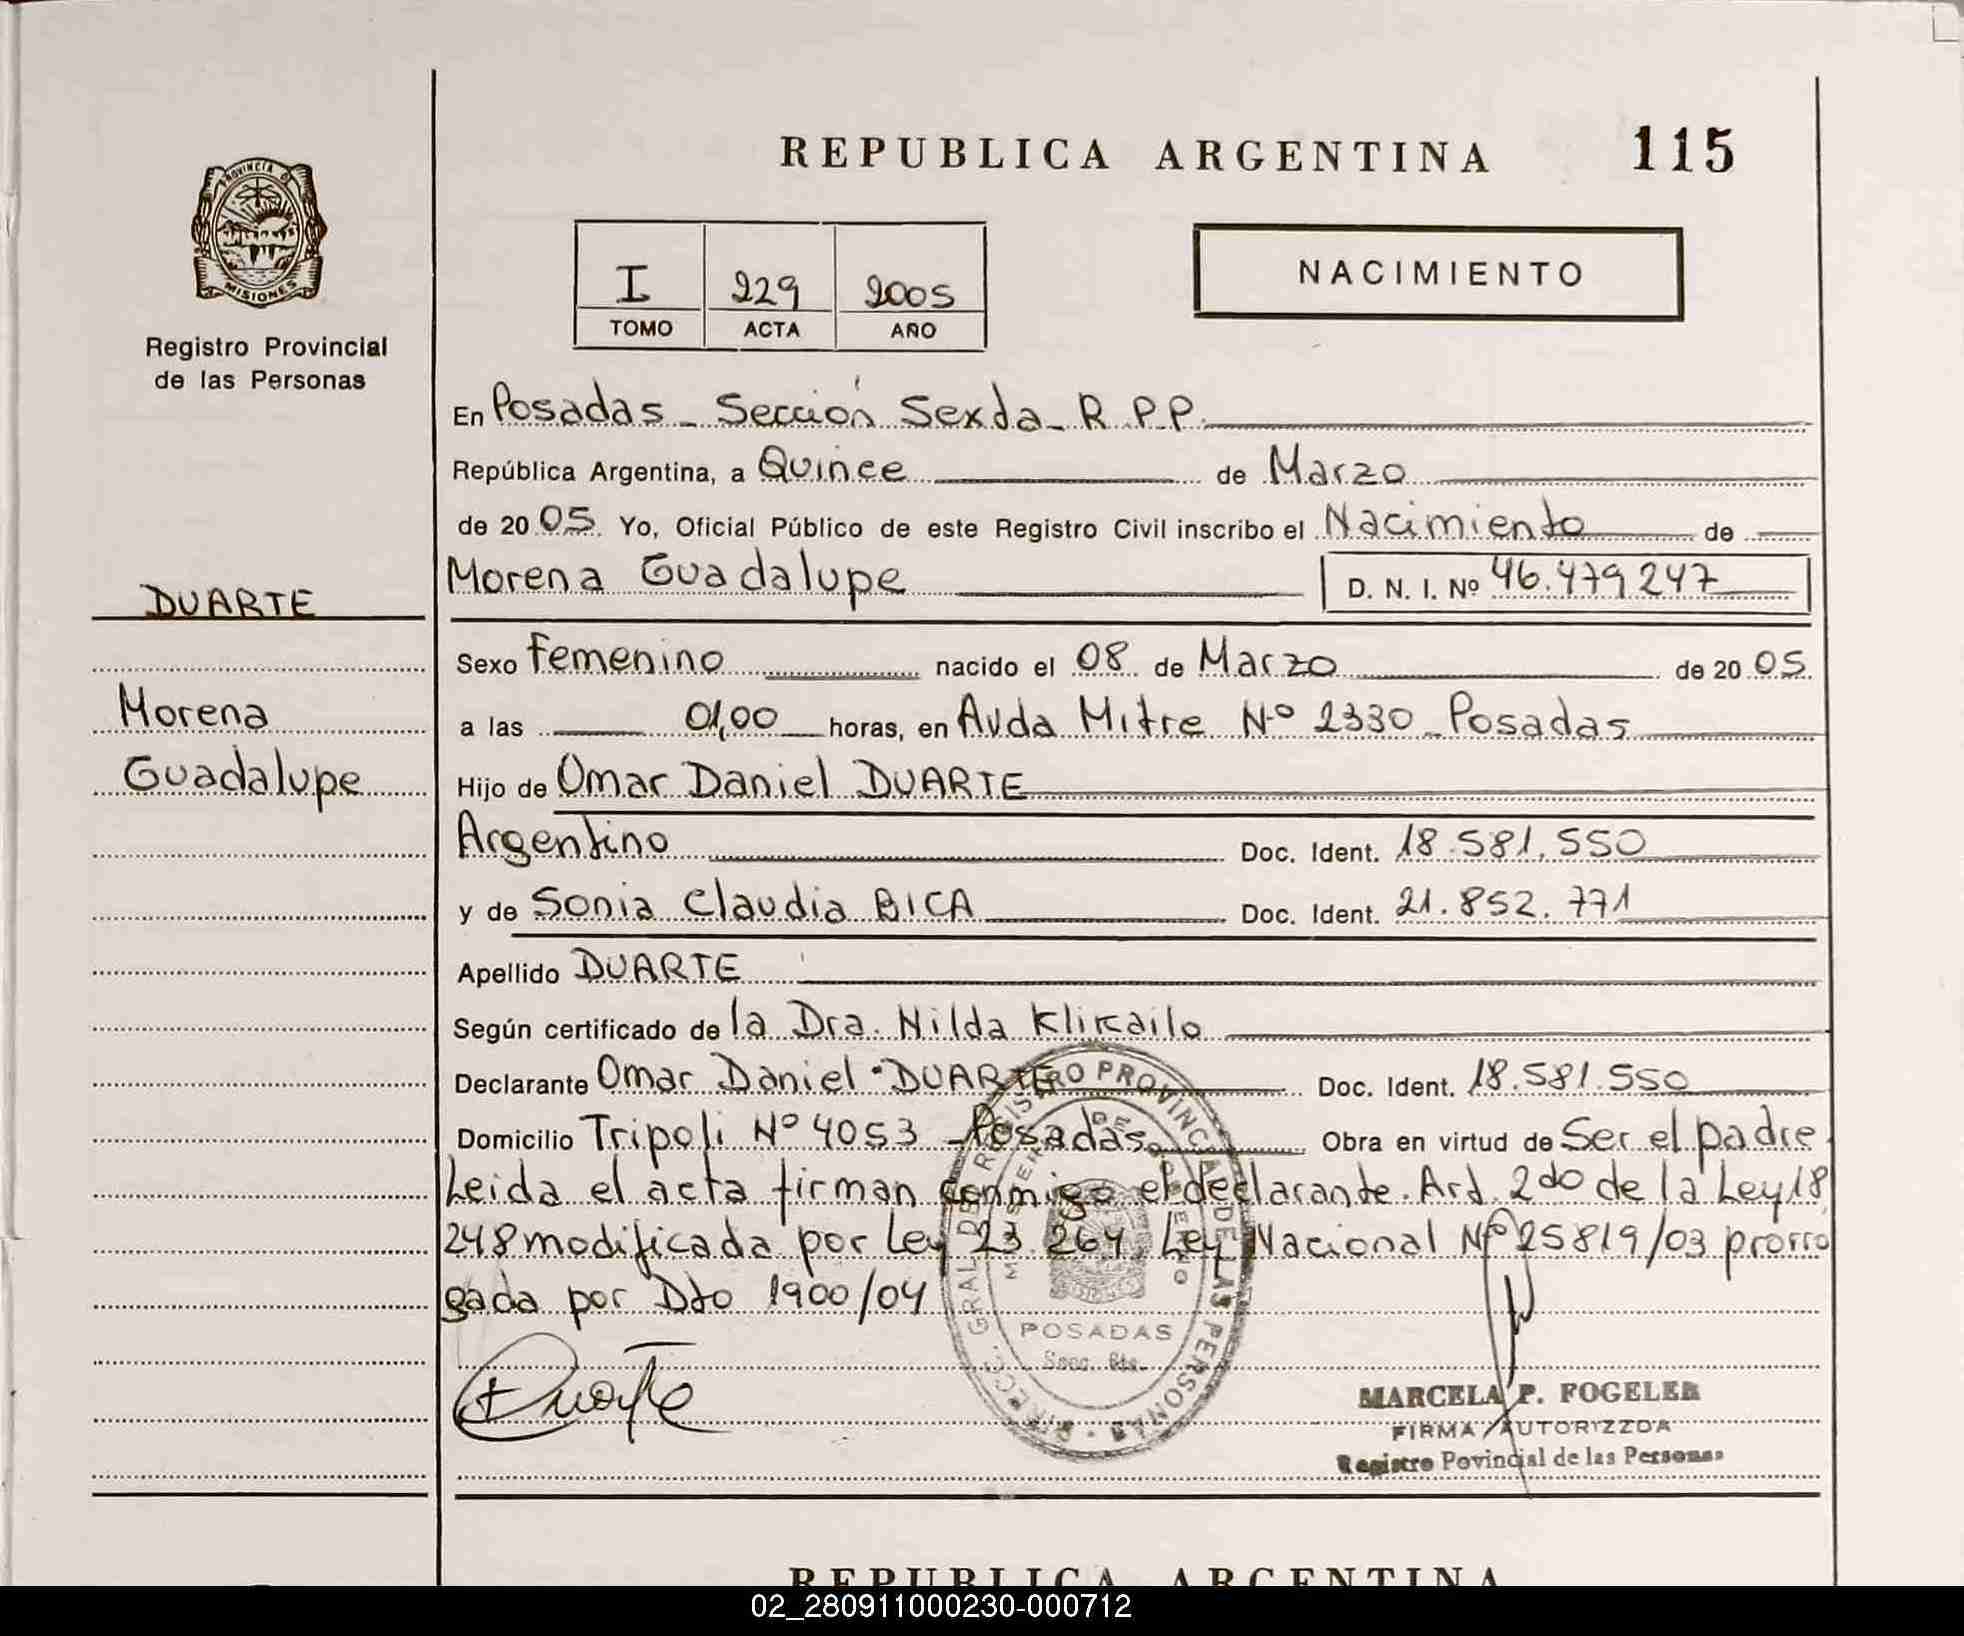 REPUBLICA ARGENTINA 115
PROVINCIA D
MISIONES
Registro Provincial
de las Personas
I 229 2005
TOMO ACTA AÑO
NACIMIENTO
En Posadas - Sección Sexta - R.P.P.
República Argentina, a Quince de Marzo
de 2005 Yo, Oficial Público de este Registro Civil inscribo el Nacimiento de
Morena Guadalupe D. N. I. Nº 46.479247
DUARTE
Morena
Guadalupe
Sexo Femenino nacido el 08 de Marzo de 2005
a las 01,00 horas, en Avda Mitre Nº 2330 - Posadas
Hijo de Omar Daniel DUARTE
Argentino Doc. Ident. 18.581.550
y de Sonia Claudia BICA Doc. Ident. 21.852.771
Apellido DUARTE
Según certificado de la Dra. Nilda Klikailo
Declarante Omar Daniel DUARTE Doc. Ident. 18.581.550
Domicilio Tripoli Nº 4053 - Posadas Obra en virtud de Ser el padre
Leida el acta firman conmigo el declarante. Art 2do de la Ley 18
248 modificada por Ley 23.264, Ley Nacional Nº 25819/03 prorro
gada por Dto 1900/04
POSADAS
Secc. 6ta.
Duarte
MARCELA P. FOGELER
FIRMA AUTORIZZDA
Registro Povincial de las Personas
REPUBLICA ARGENTINA
02_280911000230-000712